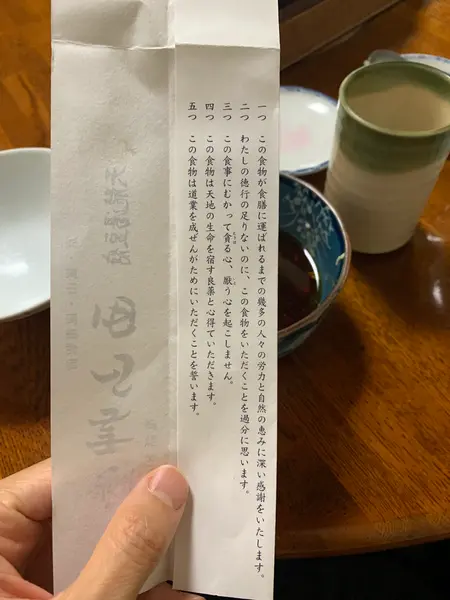 一つ この食物が食膳に運ばれるまでの幾多の人々の労力と自然の恵みに深い感謝をいたします。
二つ わたしの徳行の足りないのに、この食物をいただくことを過分に思います。
三つ この食事にむかって貪る心、厭う心を起こしません。
四つ この食物は天地の生命を宿す良薬と心得ていただきます。
五つ この食物は道業を成ぜんがためにいただくことを誓います。